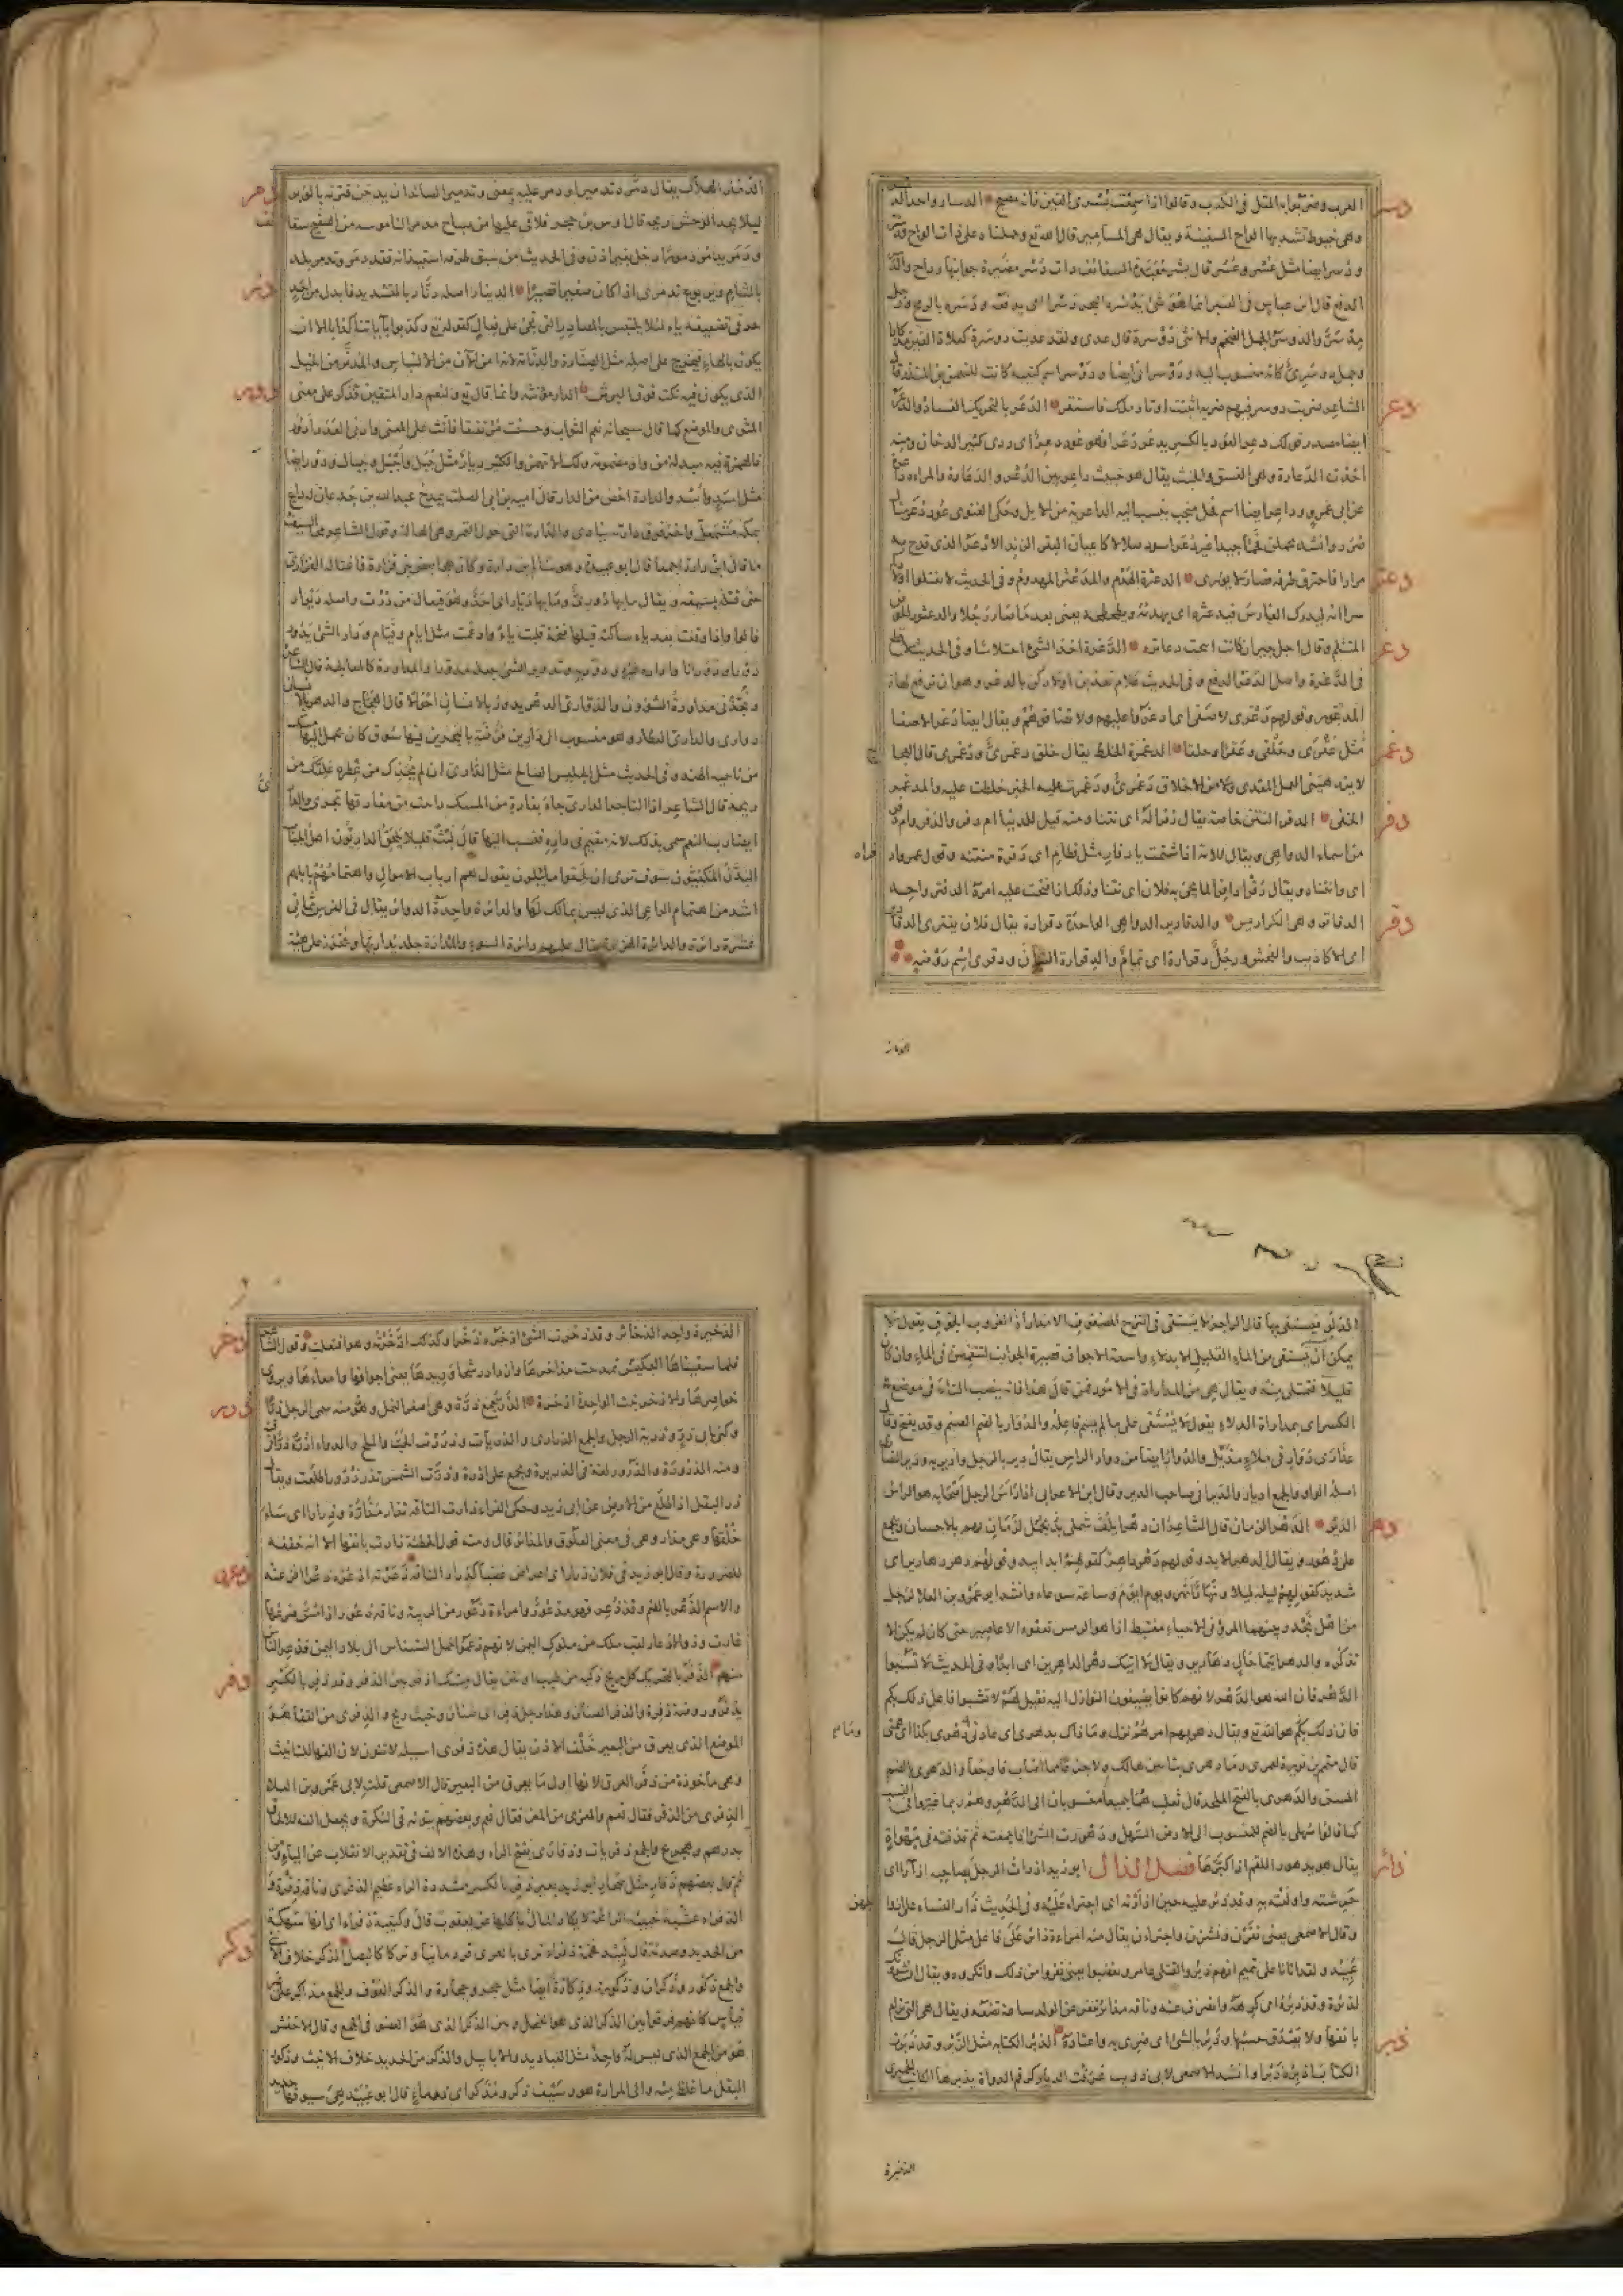 دسر
العرب وضربوا به المثل فى الكذب وقالوا اذا سمعت بسرى القين فانه مصبح الدسار واحد الدسر
وهى خيوط تشد بها الواح السفينة ويقال هى المسامير قال الله تع وحملناه على ذات الواح ودسر
ودسر ايضا مثل عسر وعسر قال بشر معبدة السقائف ذات دسر مضبرة جوانبها رداح والدسر
الدفع قال ابن عباس فى العنبر انما هو شئ يدسره البحر دسرا اى يدفعه ودسره بالرمح ورجل
مدسر والدوسر الجمل الضخم والانثى دوسرة قال عدى ولقد عديت دوسرة كعلاة القين مذكارا
وجمل دوسرى كانه منسوب اليه ودوسرانى ايضا ودوسر اسم كتيبة كانت للنعمن بن المنذر قال
دعر
الشاعر ضربت دوسر فيهم ضربة اثبتت اوتاد ملك فاستقر الدعر بالتحريك الفساد والدعر
ايضا مصدر قولك دعر العود بالكسر يدعر دعرا فهو عود دعر اى ردى كثير الدخان ومنه
اخذت الدعارة وهى الفسق والخبث يقال هو خبيث داعر بين الدعر والدعارة والمراة داعرة
عن ابى عمرو وداعر ايضا اسم فحل منجب ينسب اليه الداعرية من الابل وحكى الغنوى عود دعر مثال
صرد وانشد يحملن فحما جيدا غير دعر اسود صلالا كاعيان البقر الزند الادعر الذى قدح به
دعثر
مرارا فاحترق طرفه فصار لا يورى الدعثرة الهدم والمدعثر المهدوم وفى الحديث لا تقتلوا اولادكم
سرا انه ليدرك الفارس فيدعثره اى يهدمه ويطحطحه يعنى بعد ما صار رجلا والدعثور الحوض
دغر
المتثلم وقال اجل جير ان كانت ابيحت دعاثره الدغرة اخذ الشئ اختلاسا وفى الحديث لا قطع
فى الدغرة واصل الدغر الدفع وفى الحديث علام تعذبن اولادكن بالدغر وهو ان ترفع لهاة
المعذور وقولهم دغرى لا صفى اى ادغروا عليهم ولا تصافوهم ويقال ايضا دغرا لا صفا
دغمر
مثل عقرى وحلقى وعقرا وحلقا الدغمرة الخلط يقال خلق دغمرى ودغمرى قال العجاج
لا يزدهينى العمل المقذى ولا من الاخلاق دغمرى ودغمرت عليه الخبر خلطت عليه والمدغمر
دفر
الخفى الدفر النتن خاصة يقال دفرا له اى نتنا ومنه قيل للدنيا ام دفر والدفر وام دفر
من اسماء الدواهى ويقال للامة اذا شتمت يا دفار مثل قطام اى دفرة منتنة وقول عمر وادفراه
اى وانتناه ويقال دفرا دافرا لما يجئ به فلان اى نتنا وذلك اذا قبحت عليه امره الدفتر واحد
دقر
الدفاتر وهى الكراريس والدقارير الدواهى الواحدة دقرارة يقال فلان يفترى الدقارير
اى الاكاذيب والفحش ورجل دقرارة اى نمام والدقرارة التبان ودقرى اسم روضة
الدمار
دمر
الدمار الهلاك يقال دمره تدميرا ودمر عليه بمعنى وتدمير الصائد ان يدخن قترته بالوبر
ليلا يجد الوحش ريحه قال اوس بن حجر فلاقى عليها من صباح مدمرا لناموسه من الصفيح سقائف
ودمر يدمر دمورا دخل بغير اذن وفى الحديث من سبق طرفه استيذانه فقد دمر وتدمر بلد
دنر
بالشام ويربوع تدمرى اذا كان صغيرا قصيرا الدينار اصله دنار بالتشديد فابدل من احد
حرفى تضعيفه ياء لئلا يلتبس بالمصادر التى تجئ على فعال كقوله تع وكذبوا باياتنا كذابا الا ان
يكون بالهاء فيخرج على اصله مثل الصنارة والدنامة لانه امن الآن من الالتباس والمدنر من الخيل
دور
الذى يكون فيه نكت فوق البرش الدار مؤنثة وانما قال تع ولنعم دار المتقين فذكر على معنى
المثوى والموضع كما قال سبحانه نعم الثواب وحسنت مرتفقا فانث على المعنى وادنى العدد ادؤر
فالهمزة فيه مبدلة من واو مضمومة ولك الا تهمز والكثير ديار مثل جبل واجبل وجبال ودور ايضا
مثل اسد واسد والدارة اخص من الدار قال امية بن ابى الصلت يمدح عبد الله بن جدعان له داع
بمكة مشمعل واخر فوق دارته ينادى والدارة التى حول القمر وهى الهالة وقول الشاعر محا السيف
ما قال ابن دارة اجمعا قال ابو عبيدة وهو سالم بن دارة وكان هجا بعض بنى فزارة فاغتاله الفزارى
حتى قتله بسيفه ويقال ما بها دورى وما بها ديار اى احد وهو فيعال من درت واصله ديوار
فالواو اذا وقعت بعد ياء ساكنة قبلها فتحة قلبت ياء وادغمت مثل ايام وقيام ودار الشئ يدور
دورا ودورانا واداره غيره ودور به وتدوير الشئ جعله مدورا والمداورة كالمعالجة قال الشاعر
ونجذنى مداورة الشؤون والدوارى الدهر يدور بالانسان احوالا قال العجاج والدهر بالانسان
دوارى والدارى العطار وهو منسوب الى دارين فرضة بالبحرين فيها سوق كان يحمل اليها مسك
من ناحية الهند وفى الحديث مثل الجليس الصالح مثل الدارى ان لم يحذك من عطره علقك من
ريحه قال الشاعر اذا التاجر الدارى جاء بفارة من المسك راحت فى مفارقها تجرى والدارى
ايضا رب النعم سمى بذلك لانه مقيم فى داره فنسب اليها قال لبث قليلا يلحق الداريون اهل الجباب
البدن المكفيون سوف ترى ان لحقوا ما يبلون يقول هم ارباب الاموال واهتمامهم بابلهم
اشد من اهتمام الراعى الذى ليس بمالك لها والدائرة واحدة الدوائر يقال فى الفرس ثمانى
عشرة دائرة والدائرة الهزيمة يقال عليهم دائرة السوء والمدارة جلد يدار ويخرز على هيئة
الدلو فيستقى بها قال الراجز لا يستقى فى النزح المضفوف الا مدارات الغروب الجوف يقول لا
يمكن ان يستقى من الماء القليل الا بدلاء واسعة الاجواف قصيرة الجوانب لتنغمس فى الماء وان كان
قليلا فتمتلى منه ويقال هى من المداراة فى الامور فمن قال هذا فانه ينصب التاء فى موضع
الكسر اى بمداراة الدلاء يقول لا يستقى على ما لم يسم فاعله والدوار بالضم الصنم وقد يفتح وقال
عذارى دوار فى ملاء مذيل والدوار ايضا من دوار الراس يقال دير بالرجل وادير به ودير النصارى
اصله الواو والجمع اديار والديرانى صاحب الدير وقال ابن الاعرابى اذا راس الرجل اصحابه هو راس
دهر
الدير الدهر الزمان قال الشاعر ان دهرا يلف شملى بجمل لزمان يهم بالاحسان ويجمع
على دهور ويقال الدهر الابد وقولهم دهر داهر كقولهم ابد ابيد وقولهم دهور دهارير اى
شديد كقولهم ليلة ليلاء ونهار انهر ويوم ايوم وساعة سوعاء وانشد ابو عمرو بن العلاء لرجل
من اهل نجد وبينما المرؤ فى الاحياء مغتبط اذا هو الرمس تعفوه الاعاصير حتى كان لم يكن الا
تذكره والدهر ايتما حال دهارير ويقال لا آتيك دهر الداهرين اى ابدا وفى الحديث لا تسبوا
الدهر فان الله هو الدهر لانهم كانوا يضيفون النوازل اليه فقيل لهم لا تسبوا فاعل ذلك بكم
فان ذلك بكم هو الله تع ويقال دهر بهم امر نزل وما ذاك بدهرى اى عادتى وما دهرى بكذا اى همتى
قال متمم بن نويرة لعمرى وما دهرى بتابين هالك ولا جزع مما اصاب فاوجعا والدهرى بالضم
المسن والدهرى بالفتح الملحد قال ثعلب هما جميعا منسوبان الى الدهر وهم ربما غيروا فى النسب
كما قالوا سهلى بالضم للمنسوب الى الارض السهلة ودهورت الشئ اذا جمعته ثم قذفته فى مهواة
ذأر
يقال هو يدهور اللقم اذا كبرها فصل الذال ابو زيد اذارت الرجل بصاحبه اذآرا اى
حرشته واولعته به وقد ذئر عليه حين اذارته اى اجترا عليه وفى الحديث ذئر النساء على ازواجهن
وقال الاصمعى يعنى نفرن ونشزن واجتران يقال منه امراة ذائر على فاعل مثل الرجل قال
عبيد ولقد اتانا عن تميم انهم ذئروا لقتلى عامر وتغضبوا يعنى نفروا من ذلك وانكروه ويقال
لذئرة وقد ذئره اى كرهه وانصرف عنه وناقة مذائر تنفر عن الولد ساعة تضعه ويقال هى التى ترام
ذبر
بانفها ولا يصدق حبها وذئر بالشئ اى ضرى به واعتاده الذبر الكتابة مثل الزبر وقد ذبرت
الكتاب اذبره ذبرا وانشد الاصمعى لابى ذويب عرفت الديار كرقم الدواة يذبرها الكاتب الحميرى
الذخيرة
ذخر
الذخيرة واحد الذخائر وقد ذخرت الشئ اذخره ذخرا وكذلك اذخرته وهو افتعلت وقول الشاعر
فلما سقيناها العكيس تمدحت مذاخرها وازداد رشحا وريدها يعنى اجوافها وامعاءها ويروى
ذرر
خواصرها والاذخر نبت الواحدة اذخرة الذر جمع ذرة وهى اصغر النمل ومنه سمى الرجل ذرا
وكنى ابى ذر وذرية الرجل والجمع الذرارى والذريات وذررت الحب والملح والدواء اذره ذرا فرقته
ومنه الذريرة والذرور لغة فى الذريرة ويجمع على اذرة وذرت الشمس تذر ذرورا طلعت ويقال
ذر البقل اذا طلع من الارض عن ابى زيد وحكى الفراء ذارت الناقة تذار مذارة وذرارا اى ساء
خلقها وهى مذار وهى فى معنى العلوق والمذائر قال ومنه قول الحطيئة ذارت بانفها الا انه خففه
ذعر
للضرورة وقال ابو زيد فى فلان ذرار اى اعراض غضبا كذرار الناقة ذعرته اذعره ذعرا افزعته
والاسم الذعر بالضم وقد ذعر فهو مذعور وامراة ذعور من الريبة وناقة ذعور اذا مس ضرعها
غارت وذو الاذعار لقب ملك من ملوك اليمن لانهم زعموا حمل النسناس الى بلاد اليمن فذعر الناس
ذفر
منهم الذفر بالتحريك كل ريح ذكية من طيب او نتن يقال مسك اذفر بين الذفر وقد ذفر بالكسر
يذفر وروضة ذفرة والذفر الصنان وهذا رجل ذفر اى صنان وخبث ريح والذفرى من القفا هو
الموضع الذى يعرق من البعير خلف الاذن يقال هذه ذفرى اسيلة لا تنون لان الفها للتانيث
وهى ماخوذة من ذفر العرق لانها اول ما يعرق من البعير قال الاصمعى قلت لابى عمرو بن العلاء
الذفرى من الذفر فقال نعم والمعزى من المعز فقال نعم وبعضهم ينونه فى النكرة ويجعل الفه للالحاق
بدرهم وهجرع والجمع ذفريات وذفارى بفتح الراء وهذه الالف فى تقدير الانقلاب عن الياء ومن
ثم قال بعضهم ذفار مثل صحار ابو زيد بعير ذفر بالكسر مشددة الراء عظيم الذفرى وناقة ذفرة
الذفراء عشبة خبيثة الرائحة لا يكاد المال ياكلها عن يعقوب قال وكتيبة ذفراء اى انها سهكة
ذكر
من الحديد وصدئه قال لبيد فخمة ذفراء ترتى بالعرى قردمانيا وتركا كالبصل الذكر خلاف الانثى
والجمع ذكور وذكران وذكورة وذكارة ايضا مثل حجر وحجارة والذكر العوف والجمع مذاكير على غير
قياس كانهم فرقوا بين الذكر الذى هو الفحل وبين الذكر الذى هو العضو فى الجمع وقال الاخفش
هو من الجمع الذى ليس له واحد مثل العباديد والابابيل والذكر من الحديد خلاف الانيث وذكور
البقل ما غلظ منه والى المرارة هو وسيف ذكر ومذكر اى ذو ماء قال ابو عبيد هى سيوف